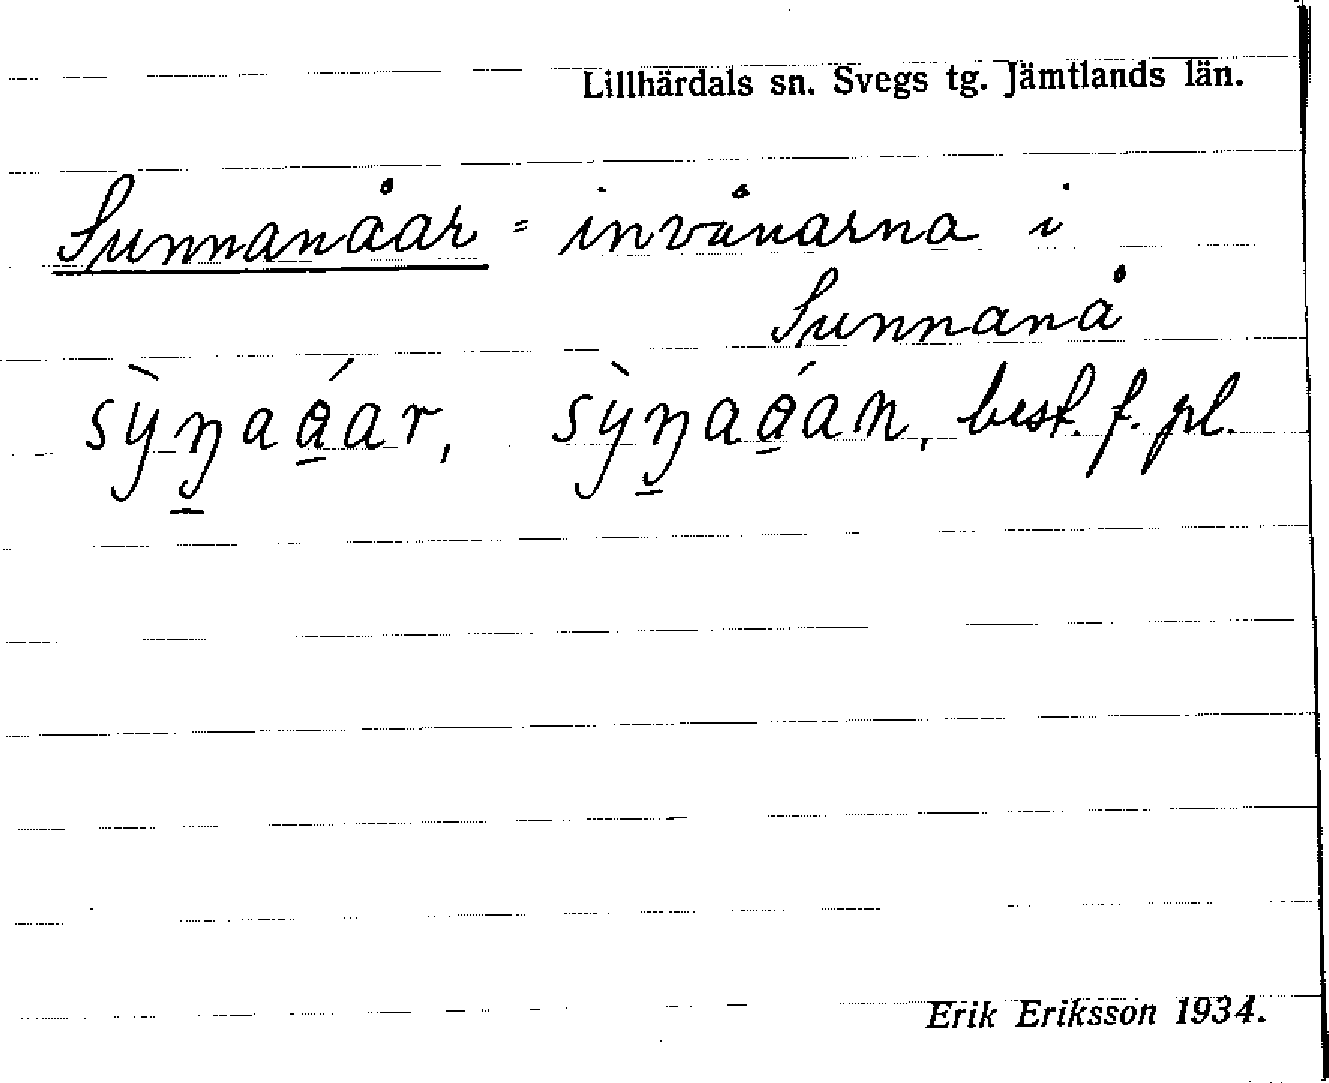 Lillhärdals sn. Svegs tg. Jämtlands län.
Sunnanåar = invånarna i
Sunnanå
best. f. pl.
Erik Eriksson 1934.